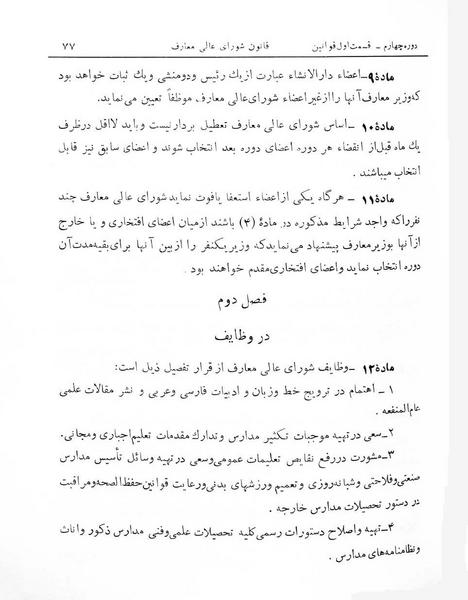 دوره چهارم - قسمت اول قوانین قانون شورای عالی معارف ۷۷
مادهٔ ۹ـ اعضاء دارالانشاء عبارت از یك رئیس ودومنشی ویك ثبات خواهد بود
که وزیر معارف آنها را از غیر اعضاء شورای عالی معارف موظفاً تعیین می نماید.
مادهٔ ۱۰ ـ اساس شورای عالی معارف تعطیل بردار نیست و باید لااقل در ظرف
یك ماه قبل از انقضاء هر دوره اعضای دوره بعد انتخاب شوند و اعضای سابق نیز قابل
انتخاب میباشند .
مادهٔ ۱۱ ـ هر گاه یکی از اعضاء استعفا یا فوت نماید شورای عالی معارف چند
نفر را که واجد شرایط مذکوره در مادهٔ (۴) باشند از میان اعضای افتخاری و یا خارج
از آنها بوزیر معارف پیشنهاد می نماید که وزیر یکنفر را از بین آنها برای بقیه مدت آن
دوره انتخاب نماید و اعضای افتخاری مقدم خواهند بود .
فصل دوم
در وظایف
مادهٔ ۱۲ ـ وظایف شورای عالی معارف از قرار تفصیل ذیل است:
۱ ـ اهتمام در ترویج خط و زبان و ادبیات فارسی و عربی و نشر مقالات علمی
عام المنفعه .
۲ـ سعی در تهیه موجبات تکثیر مدارس و تدارك مقدمات تعلیم اجباری و مجانی.
۳ـ مشورت در رفع نقایص تعلیمات عمومی و سعی در تهیه وسائل تأسیس مدارس
صنعتی و فلاحتی و شبانه روزی و تعمیم ورزشهای بدنی و رعایت قوانین حفظ الصحه و مراقبت
در دستور تحصیلات مدارس خارجه .
۴ـ تهیه و اصلاح دستورات رسمی کلیه تحصیلات علمی و فنی مدارس ذکور و اناث
و نظامنامه های مدارس .